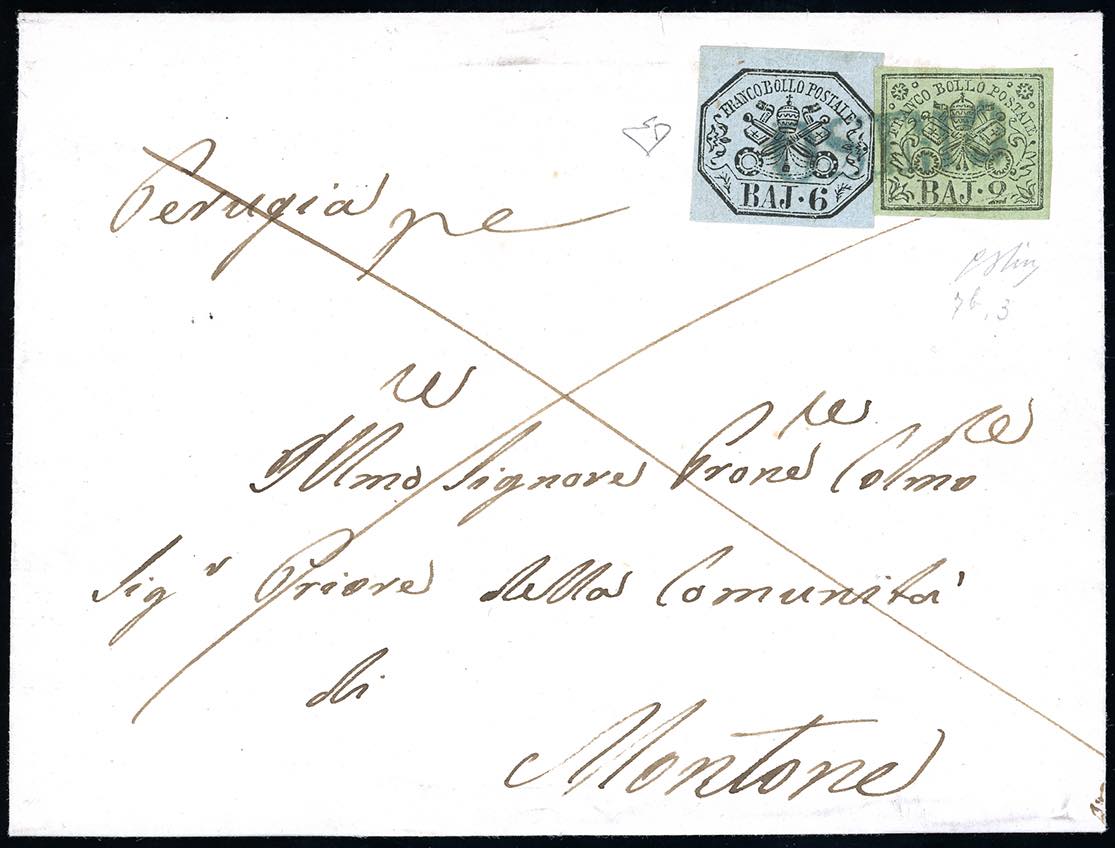 FRANCO BOLLO POSTALE
BAJ·6
FRANCO BOLLO POSTALE
BAJ·2
Perugia pe
7b, 3
re re re
Illmo Signore Prone Colmo
Sigr Priore della Comunità
di
Montone